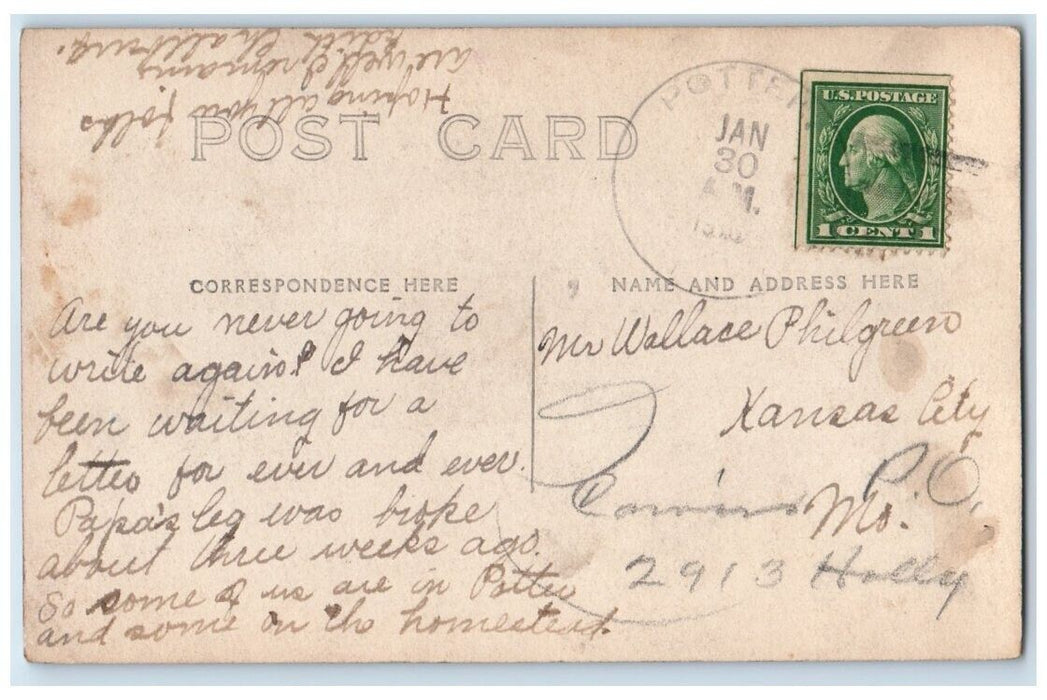 POST CARD
POTTER
JAN
30
A.M.
U.S. POSTAGE
1 CENT 1
CORRESPONDENCE HERE
NAME AND ADDRESS HERE
Are you never going to
write again? I have
been waiting for a
letter for ever and ever.
Papa's leg was broke
about three weeks ago.
So some of us are in Potter
and some on the homestead.
Hoping all you folks
are well I remain
Edith
Mr Wallace Philgreen
Kansas City
Mo.
P.O.
2913 Holly